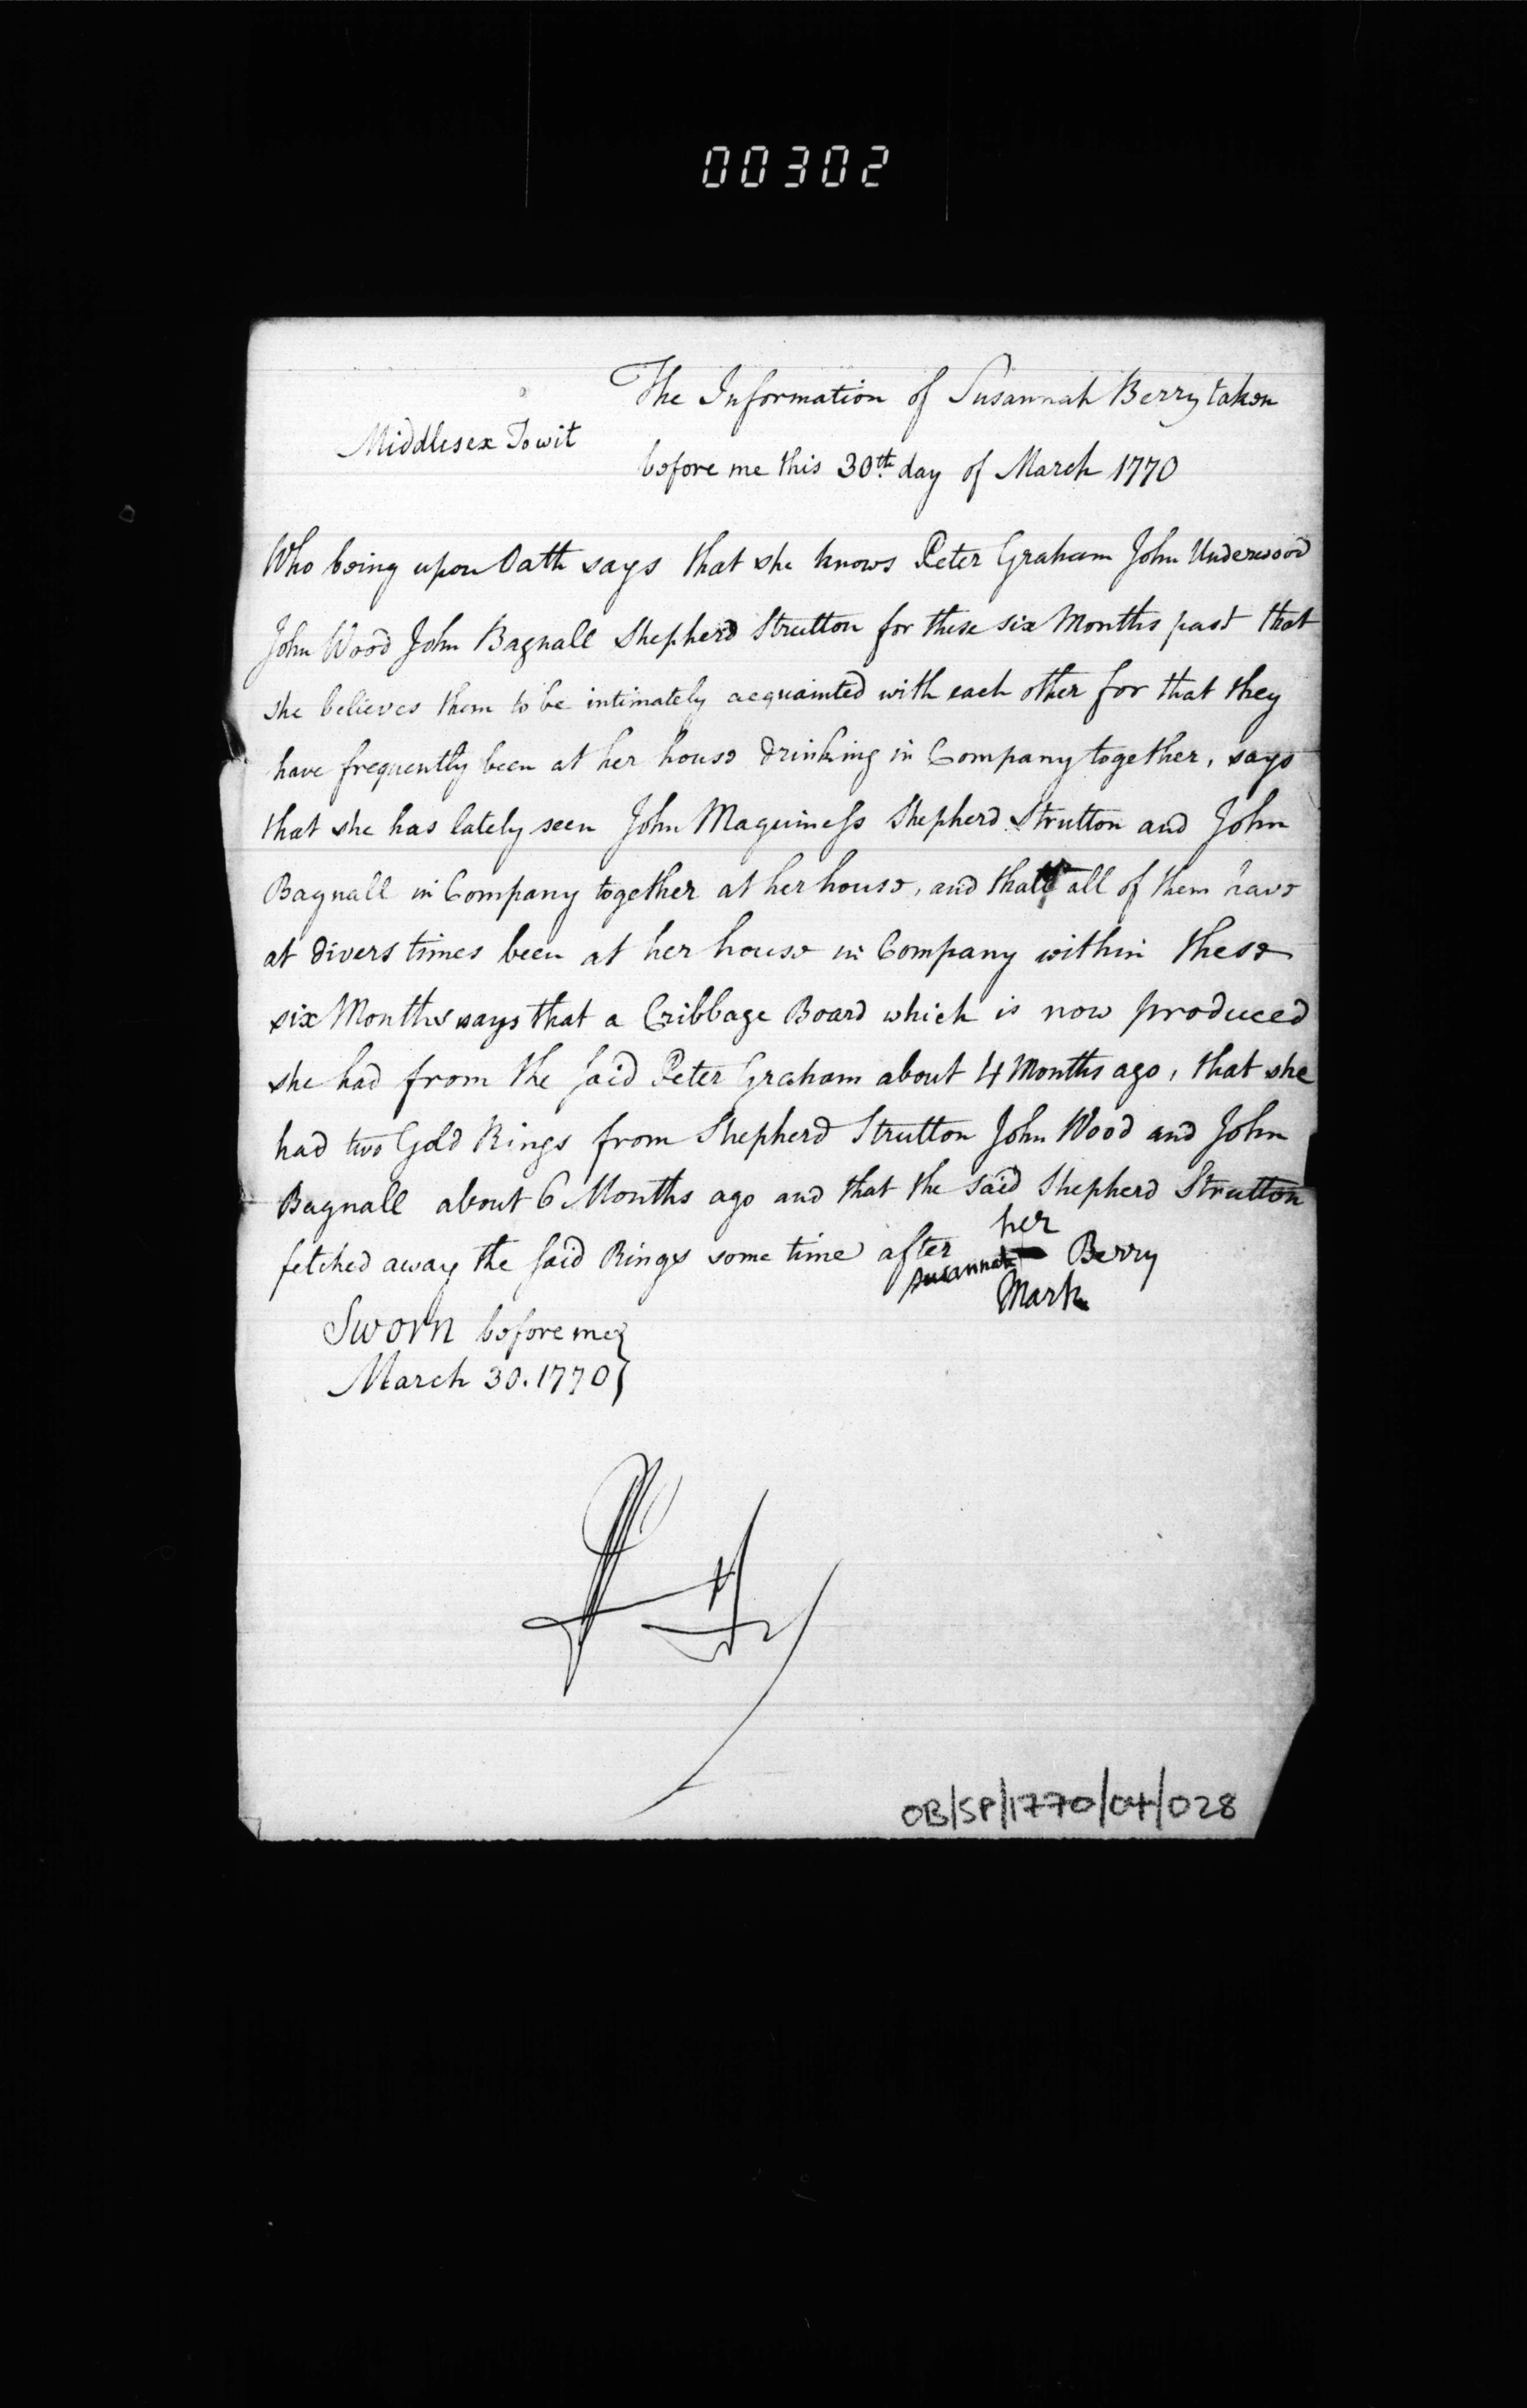 00302
The Information of Susannah Berry taken
Middlesex Towit
before me this 30th. day of March 1770
Who being upon Oath says that she knows Peter Graham John Underwood
John Wood John Bagnall Shepherd Strutton for these six Months past that
she believes them to be intimately acquainted with each other for that they
have frequently been at her house drinking in Company together, says
that she has lately seen John Maguiness Shepherd Strutton and John
Bagnall in Company together at her house, and that all of them have
at divers times been at her house in Company within these
six Months says that a Cribbage Board which is now produced
she had from the said Peter Graham about 4 Months ago, that she
had two Gold Rings from Shepherd Strutton John Wood and John
Bagnall about 6 Months ago and that the said Shepherd Strutton
fetched away the said Rings some time after
her
Susannah Berry
Mark
Sworn before me
March 30. 1770
OB/SP/1770/04/028